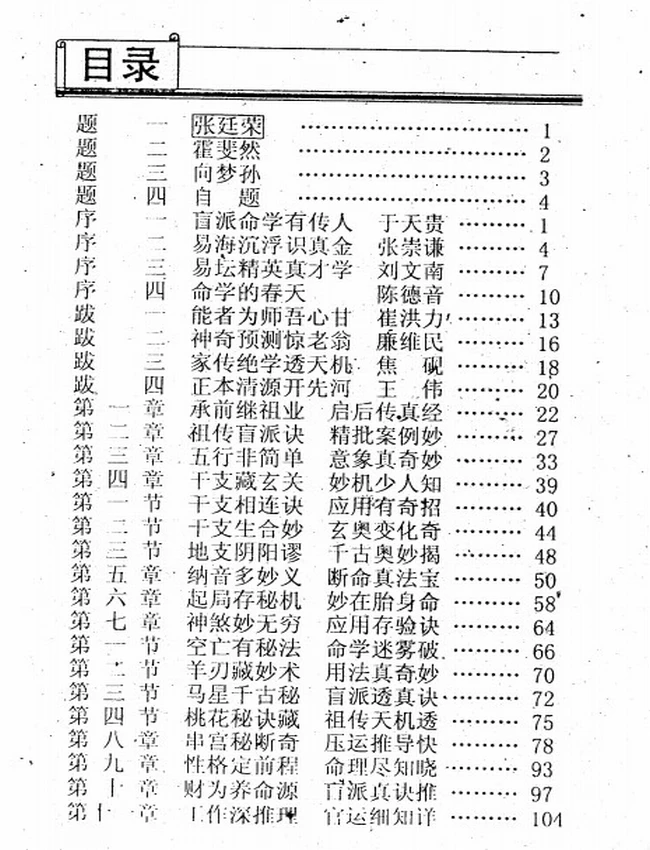 目录
题 一 张廷荣 ………………………… 1
题 二 霍斐然 ………………………… 2
题 三 向梦孙 ………………………… 3
题 四 自 题 ………………………… 4
序 一 盲派命学有传人 于天贵 ……… 1
序 二 易海沉浮识真金 张崇谦 ……… 4
序 三 易坛精英真才学 刘文南 ……… 7
序 四 命学的春天 陈德音 ……… 10
跋 一 能者为师吾心甘 崔洪力 ……… 13
跋 二 神奇预测惊老翁 廉维民 ……… 16
跋 三 家传绝学透天机 焦 砚 ……… 18
跋 四 正本清源开先河 王 伟 ……… 20
第一章 承前继祖业 启后传真经 ……… 22
第二章 祖传盲派诀 精批案例妙 ……… 27
第三章 五行非简单 意象真奇妙 ……… 33
第四章 干支藏玄关 妙机少人知 ……… 39
第一节 干支相连诀 应用有奇招 ……… 40
第二节 干支生合妙 玄奥变化奇 ……… 44
第三节 地支阴阳谬 千古奥妙揭 ……… 48
第五章 纳音多妙义 断命真法宝 ……… 50
第六章 起局存秘机 妙在胎身命 ……… 58
第七章 神煞妙无穷 应用存验诀 ……… 64
第一节 空亡有秘法 命学迷雾破 ……… 66
第二节 羊刃藏妙术 用法真奇妙 ……… 70
第三节 马星千古秘 盲派透真诀 ……… 72
第四节 桃花秘诀藏 祖传天机透 ……… 75
第八章 串宫秘断奇 压运推导快 ……… 78
第九章 性格定前程 命理尽知晓 ……… 93
第十章 财为养命源 盲派真诀推 ……… 97
第十一章 工作深推理 官运细知详 ……… 104